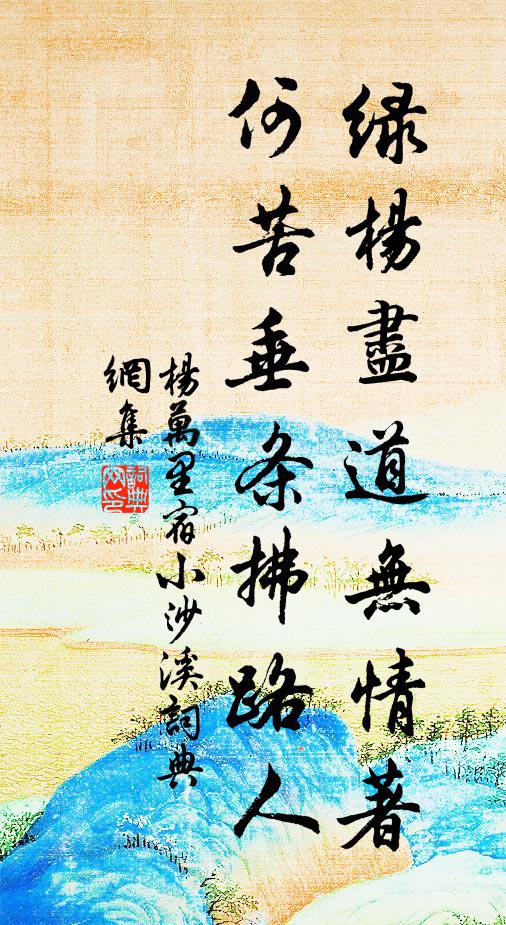 绿楊盡道無情著
何苦垂条拂路人
楊萬里宿小沙溪詞典
網集